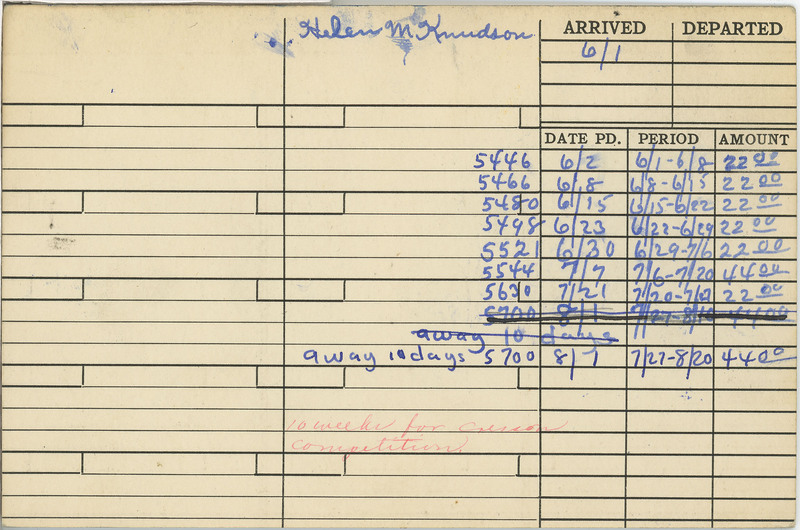 Helen M Knudson
ARRIVED DEPARTED
6/1
DATE PD. PERIOD AMOUNT
5446 6/2 6/1-6/8 22 00
5466 6/8 6/8-6/15 22 00
5480 6/15 6/15-6/22 22 00
5498 6/23 6/22-6/29 22 00
5521 6/30 6/29-7/6 22 00
5544 7/7 7/6-7/20 44 00
5630 7/21 7/20-7/27 22 00
5700 8/1 7/27-8/10 44 00
away 10 days
away 10 days 5700 8/1 7/27-8/20 44 00
10 weeks for
competition